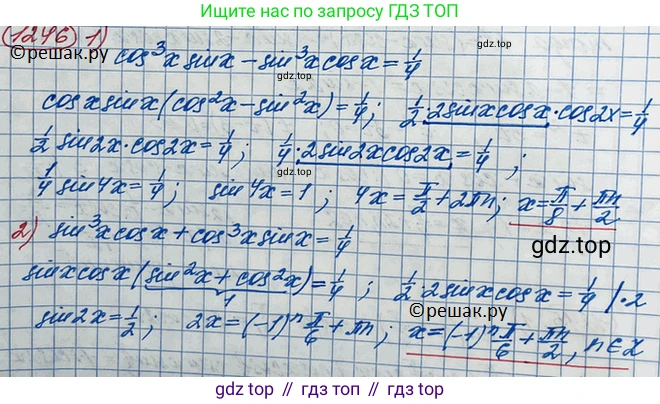 Ищите нас по запросу ГДЗ ТОП
1246 1) cos³x sinx − sin³x cosx = 1/4
©физмат
gdz.top
©физмат
cosx sinx (cos²x − sin²x) = 1/4; 1/2 · 2sinxcosx · cos2x = 1/4
1/2 sin2x · cos2x = 1/4; 1/4 · 2sin2xcos2x = 1/4;
1/4 sin4x = 1/4; sin4x = 1; 4x = π/2 + 2πn; x = π/8 + πn/2
gdz.top
2) sin³x cosx + cos³x sinx = 1/4
gdz.top
sinx cosx (sin²x + cos²x) = 1/4; 1/2 · 2sinxcosx = 1/4 | · 2
1
sin2x = 1/2; 2x = (−1)ⁿ π/6 + πn; x = (−1)ⁿ π/6 + πn/2, n ∈ Z
gdz.top
gdz top // гдз топ // gdz top